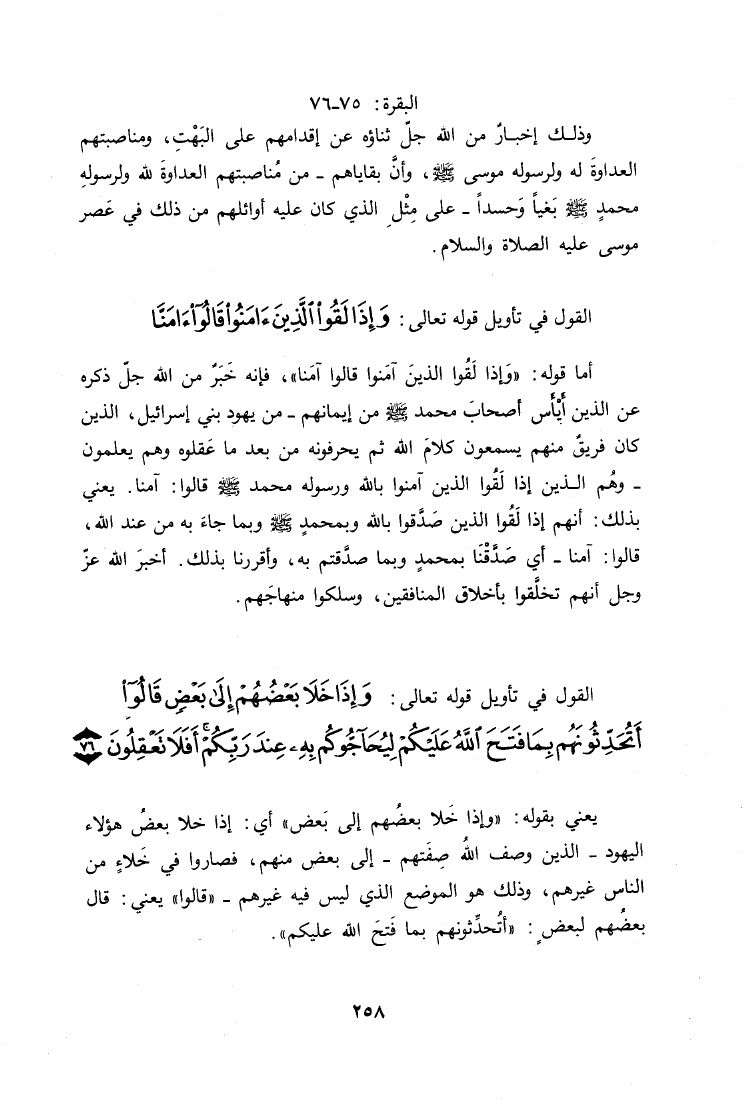 البقرة: ٧٥-٧٦
وذلك إخبارٌ من الله جلّ ثناؤه عن إقدامهم على البَهْتِ، ومناصبتهم
العداوةَ له ولرسوله موسى ﷺ، وأنَّ بقاياهم - من مُناصبتهم العداوةَ لله ولرسولهِ
محمدٍ ﷺ بَغياً وَحسداً - على مِثْلِ الذي كان عليه أوائلهم من ذلك في عَصر
موسى عليه الصلاة والسلام.
القول في تأويل قوله تعالى: وَإِذَا لَقُوا۟ ٱلَّذِينَ ءَامَنُوا۟ قَالُوٓا۟ ءَامَنَّا
أما قوله: «وَإذا لَقُوا الذينَ آمَنوا قالوا آمَنا»، فإنه خَبَرٌ من الله جلّ ذكره
عن الذين أَيْأَس أصحابَ محمد ﷺ من إيمانهم - من يهود بني إسرائيل، الذين
كان فريقٌ منهم يسمعون كلامَ الله ثم يحرفونه من بعد ما عَقلوه وهم يعلمون
- وهُم الذين إذا لَقُوا الذين آمنوا بالله ورسوله محمد ﷺ قالوا: آمنا. يعني
بذلك: أنهم إذا لَقُوا الذين صَدَّقوا بالله وبمحمدٍ ﷺ وبما جاءَ به من عند الله،
قالوا: آمنا - أي صَدَّقْنَا بمحمدٍ وبما صدَّقتم به، وأقررنا بذلك. أخبرَ الله عزّ
وجل أنهم تخلَّقوا بأخلاق المنافقين، وسلكوا منهاجَهم.
القول في تأويل قوله تعالى: وَإِذَا خَلَا بَعْضُهُمْ إِلَىٰ بَعْضٍ قَالُوٓا۟
أَتُحَدِّثُونَهُم بِمَا فَتَحَ ٱللَّهُ عَلَيْكُمْ لِيُحَآجُّوكُم بِهِۦ عِندَ رَبِّكُمْ ۚ أَفَلَا تَعْقِلُونَ ٧٦
يعني بقوله: «وإذا خَلا بعضُهم إلى بَعض» أي: إذا خلا بعضُ هؤلاء
اليهود - الذين وصف اللهُ صِفَتهم - إلى بعض منهم، فصاروا في خَلاءٍ من
الناس غيرهم، وذلك هو الموضع الذي ليس فيه غيرهم - «قالوا» يعني: قال
بعضُهم لبعضٍ: «أتُحدِّثونهم بما فَتَحَ الله عليكم».
٢٥٨